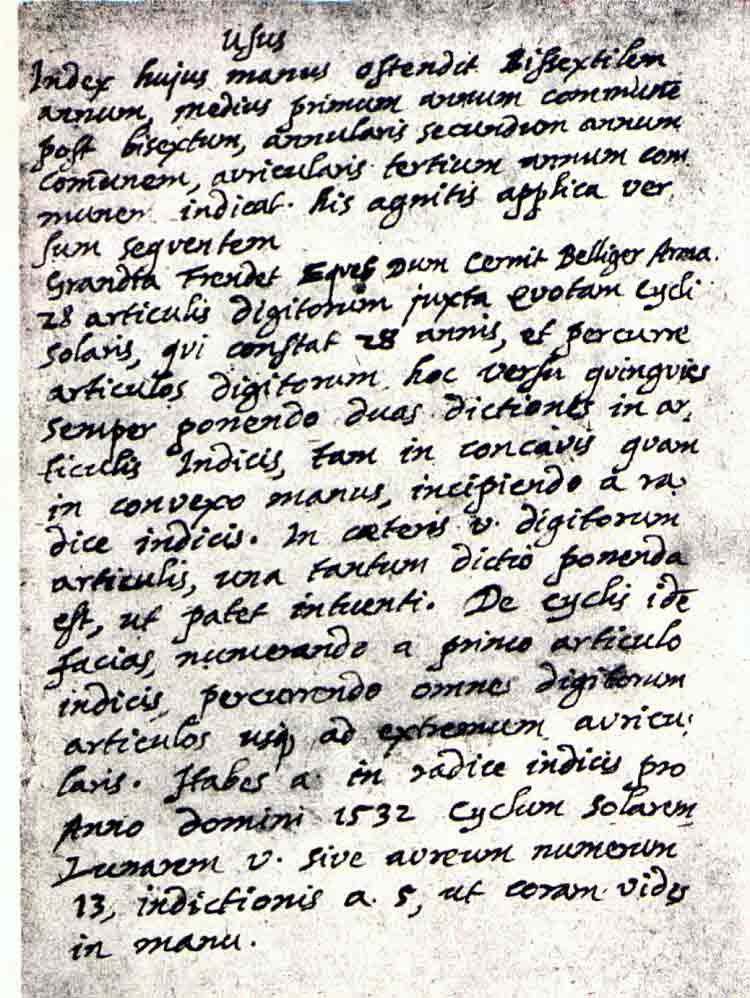 Usus
Index hujus manus ostendit Bissextilem
annum, medius primum annum communē
post bisextum, annularis secundum annum
com̄unem, auricularis tertium annum com
munem indicat. his agnitis applica ver
sum sequentem
Grandia Frendet Eques Dum Cernit Belliger Arma.
28 articulis digitorum juxta quotam Cycli
solaris, qui constat 28 annis, et percurre
articulos digitorum hoc versu quinquies
semper ponendo duas dictiones in ar,
ticulis Indicis, tam in concavis quam
in convexo manus, incipiendo a ra,
dice indicis. In cæteris v. digitorum
articulis, una tantum dictio ponenda
est, ut patet intuenti. De cyclis idē
facias, numerando a primo articulo
indicis, percurrendo omnes digitorum
articulos usq ad extremum auricu,
laris. Habes a. in radice indicis pro
Anno domini 1532 Cyclum Solarem
Lunarem v. sive aureum numerum
13, indictionis a. 5, ut coram vides
in manu.